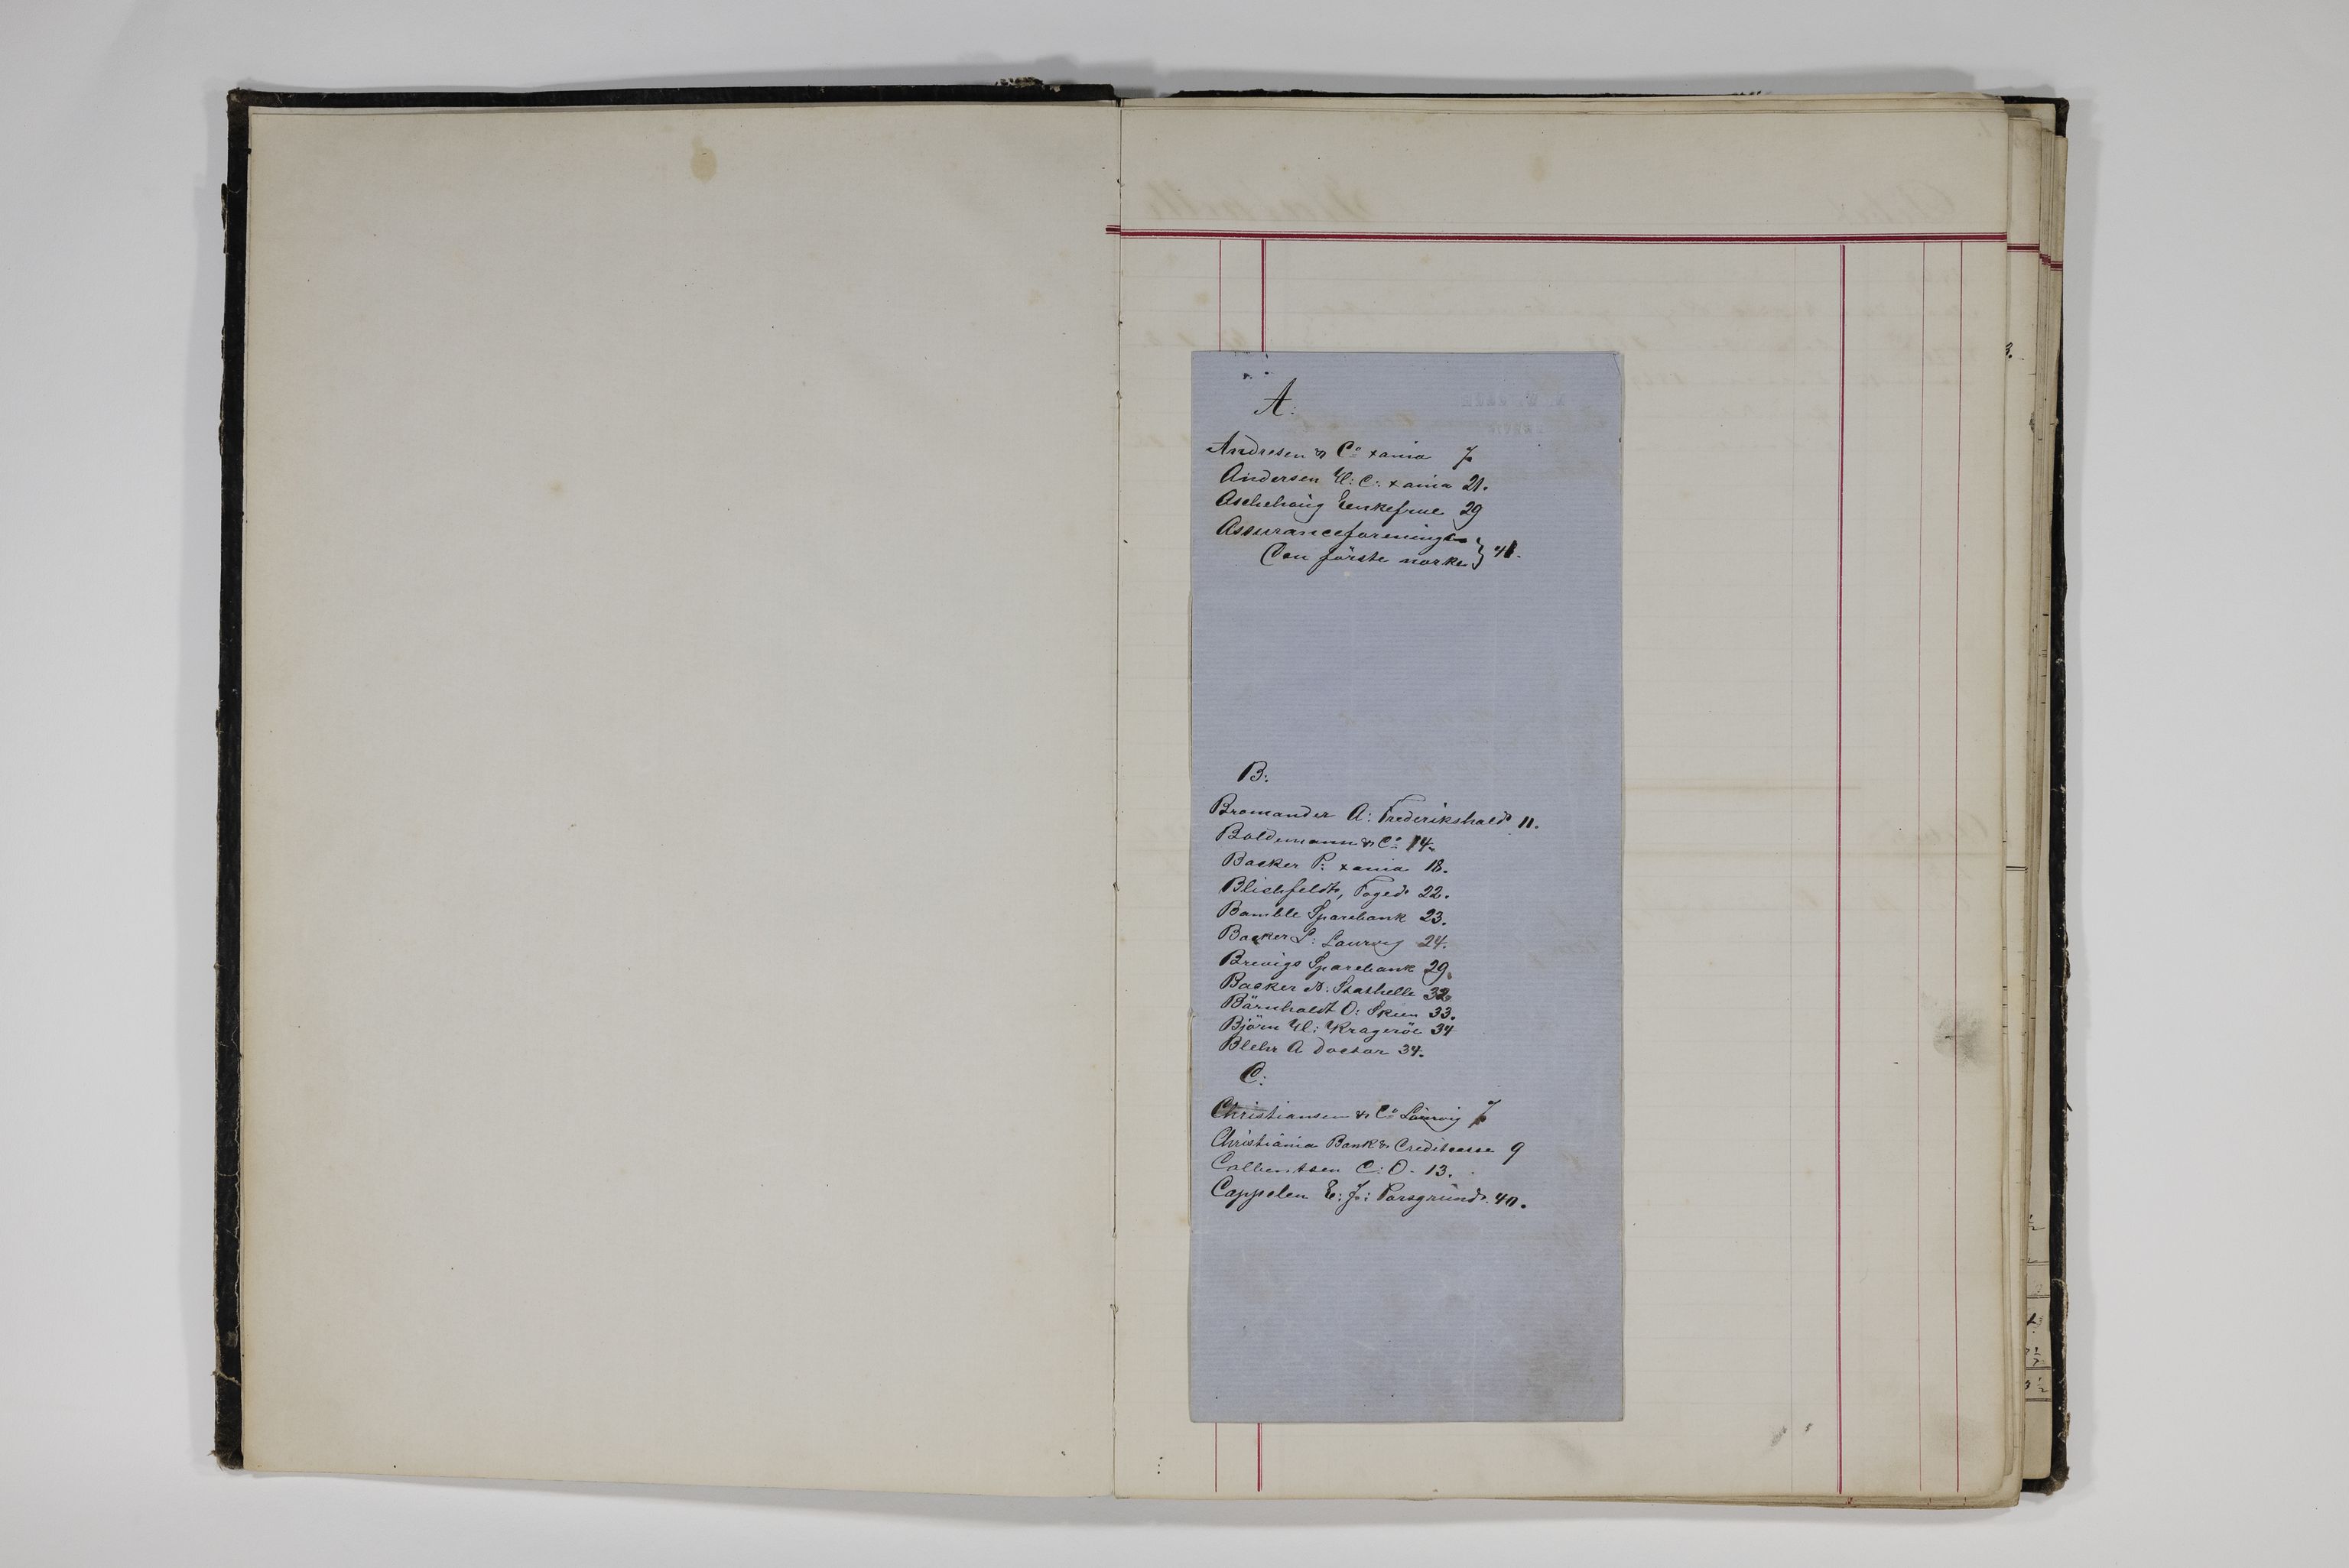 A:
Andresen & Co xania 7
Andersen H: C: xania 21.
Aschehoug Enkefrue 29
Assuranceforeningen
Den förste norke } 41.
B:
Bromander A: Frederikshald 11.
Boldemann & Co 14.
Backer P: xania 18.
Blichfeldt, Foged 22.
Bamble Sparebank 23.
Backer L: Laurvig 24.
Brevigs Sparebank 29.
Backer N: Stathelle 32
Bärnholdt O: Skien 33.
Björn H: Krageröe 34
Blehr A Doctor 34.
C:
Christiansen & Co Laurvig 7
Christiania Bank & Creditcasse 9
Colbentsen C: O. 13.
Cappelen E: J: Porsgrund. 40.